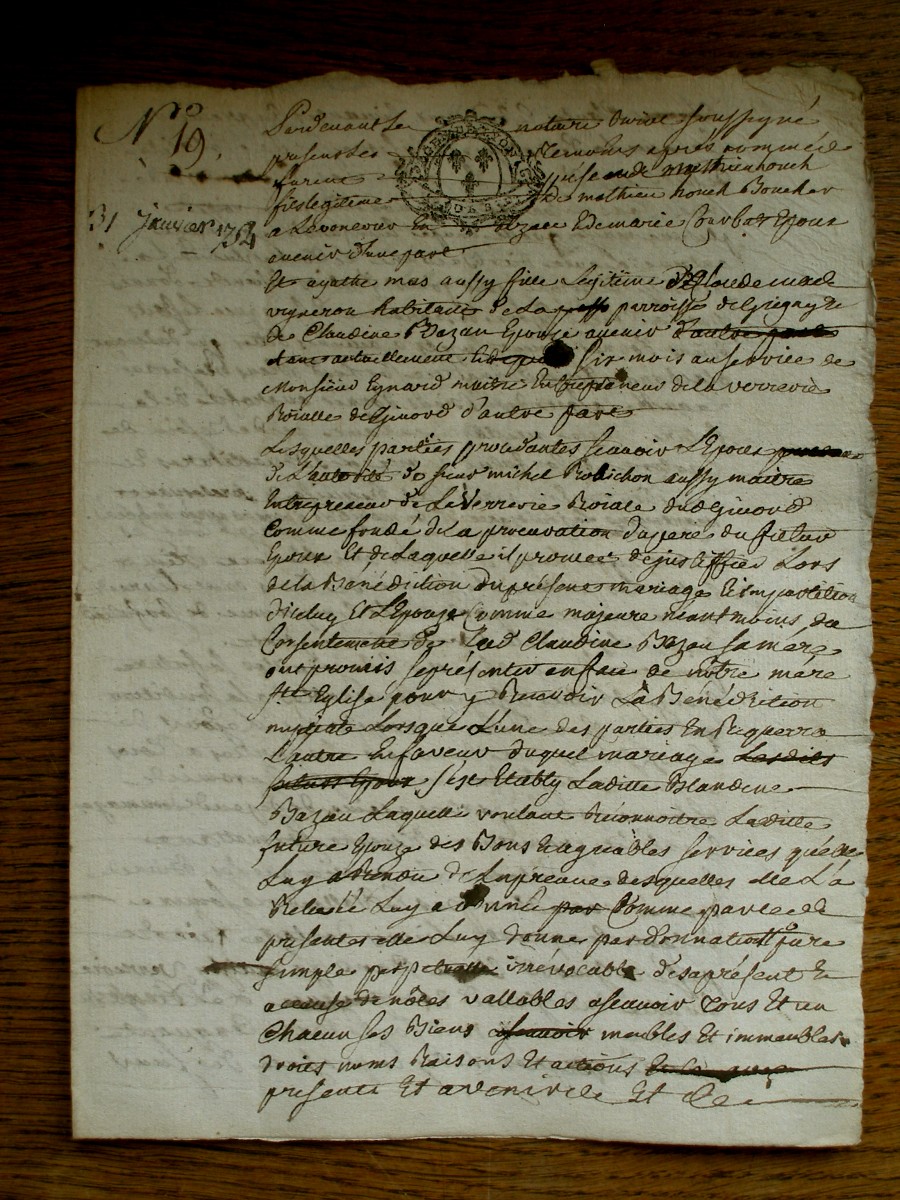 N° 19
31 janvier 1752
Pardevant Le notaire Roial soussigné
presents Les temoins après nommés
furent joseande mathieu houch
fils legitime de mathieu houch Boucher
a Levonerier En alzace Et de marie Barbat Epoux
avenir d'une part
Et agathe mas aussy fille Legitime de Claude mas
vigneron habitant de La parroisse de Grigny Et
de Claudine Bazan Epouze avenir d'autre part
étant actuellement depuis six mois au service de
Monsieur Eynard maitre Entrepreneur de la verrerie
Roialle de Givord d'autre part
Lesquelles parties procedantes scavoir L'Epoux
de L'autorité de sieur michel Robichon aussy maitre
Entrepreneur de La Verrerie Roiale dud Givord
Comme fondé de La procuration du pere du futur
Epoux Et de Laquelle il promet de justiffier Lors
de la Bénédiction du présent mariage
d'iceluy Et L'Epouze Comme majeure neantmoins du
Consentement de Lad Claudine Bazan sa mere
ont promis se présenter en face de notre mere
Ste Eglise pour y Recevoir La Bénédiction
nuptiale Lorsque L'une des parties En Requerra
L'autre En faveur duquel mariage Lesdits
futurs Epoux s'est Etably Laditte Blandine
Bazan Laquelle voulant Reconnoitre Laditte
future Epouze des Bons Et agréables services qu'elle
Luy a Rendu de La preuve desquelles elle L'a
Relevé Luy a donné par Comme par ces
présentes elle Luy donne par donnation pure
simple perpetuelle irrévocable dès aprésent Et
a cause de nôces vallables ascavoir tous Et un
Chacun ses Biens ascavoir meubles Et immeubles
droits noms Raisons Et actions
présents Et avenir